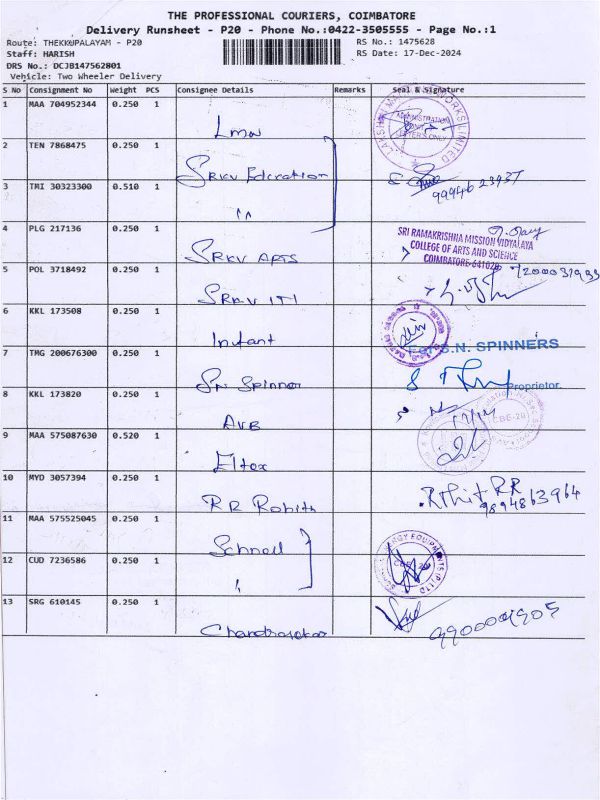 THE PROFESSIONAL COURIERS, COIMBATORE
Delivery Runsheet - P20 - Phone No.:0422-3505555 - Page No.:1
Route: THEKKUPALAYAM - P20
RS No.: 1475628
Staff: HARISH
RS Date: 17-Dec-2024
DRS No.: DCJB147562801
Vehicle: Two Wheeler Delivery
S No Consignment No Weight PCS Consignee Details Remarks Seal & Signature
1 MAA 704952344 0.250 1
Lmw
ADMINISTRATION
2 TEN 7868475 0.250 1
SRKV Education
3 TMI 30323300 0.510 1
"
99946 23937
4 PLG 217136 0.250 1
SRKV ARTS
SRI RAMAKRISHNA MISSION VIDYALAYA
COLLEGE OF ARTS AND SCIENCE
COIMBATORE-641020
5 POL 3718492 0.250 1
SRKV ITI
6 KKL 173508 0.250 1
Instant
7 TMG 200676300 0.250 1
SN Spinner
For S.N. SPINNERS
Proprietor.
8 KKL 173820 0.250 1
AVB
CBE-20
9 MAA 575087630 0.520 1
Eltex
10 MYD 3057394 0.250 1
RR Rohith
Rohit RR
9894863964
11 MAA 575525045 0.250 1
Schnell
12 CUD 7236586 0.250 1
"
13 SRG 610145 0.250 1
Chandrasekar